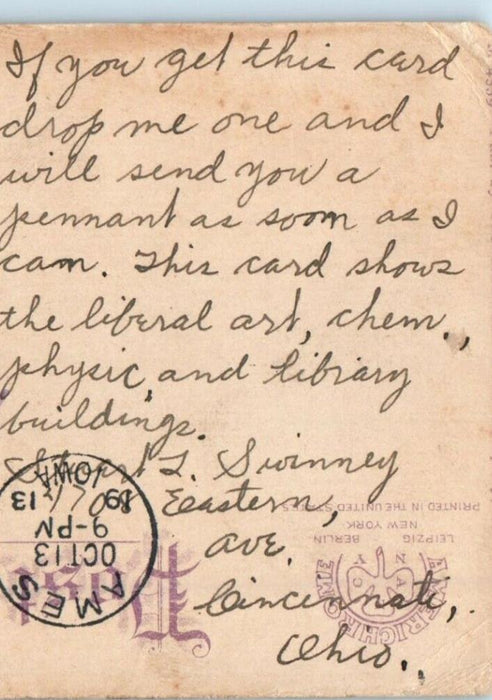 If you get this card
drop me one and I
will send you a
pennant as soon as I
can. This card shows
the liberal art, chem.,
physic, and library
buildings.
L. Swinney
Eastern,
ave.
Cincennate,
Ohio.
AMES
OCT 13
9-PM
1913
IOWA
Post
AMERICHROME
LEIPZIG BERLIN
NEW YORK
PRINTED IN THE UNITED STATES